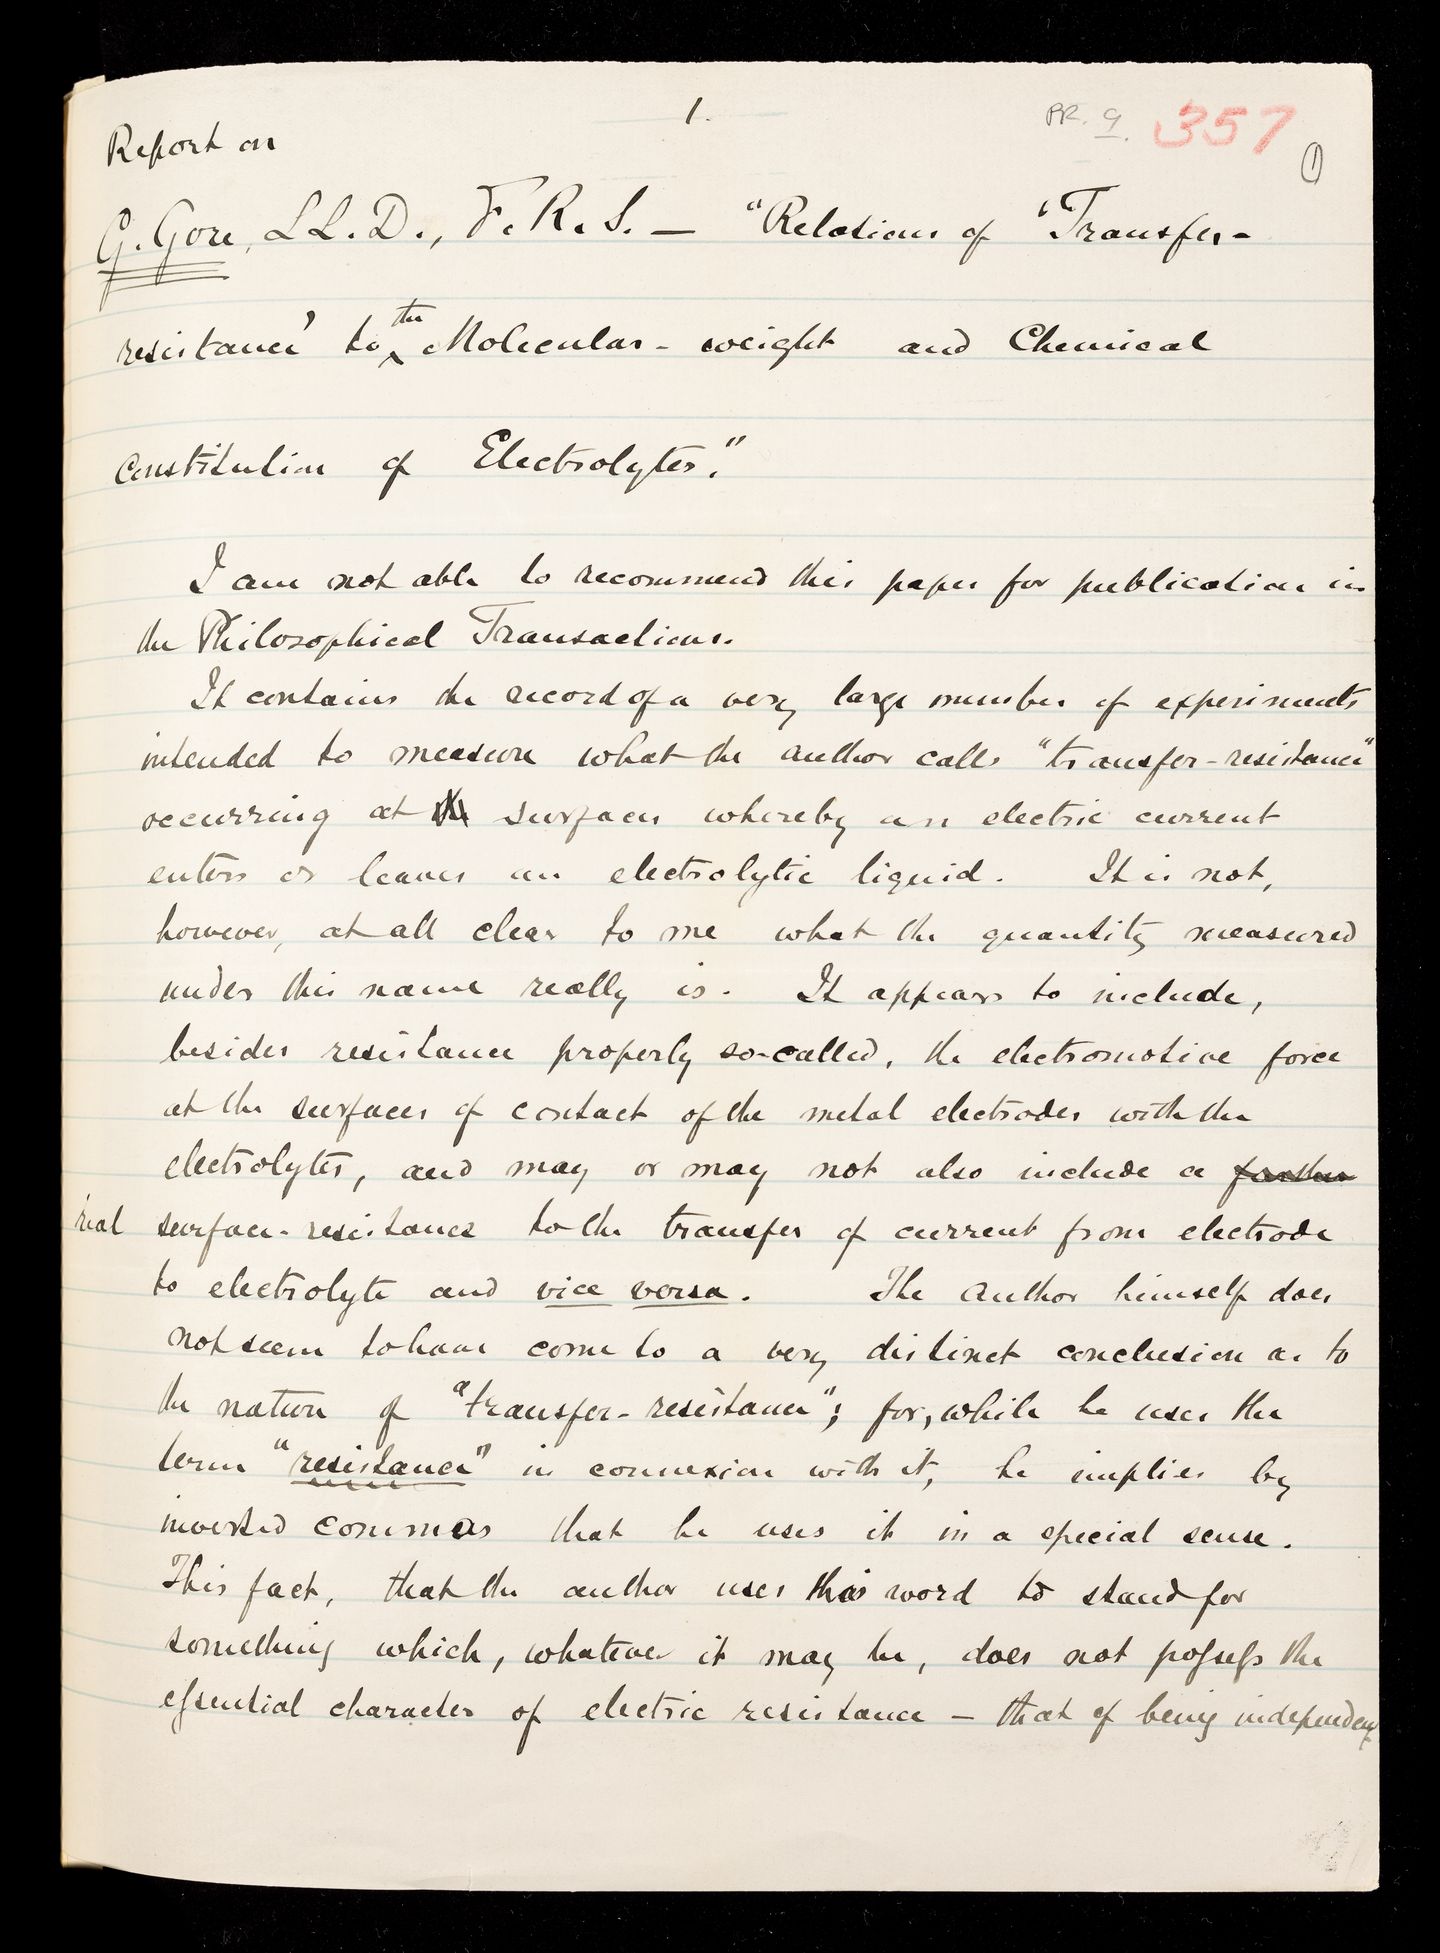 1.
RR. 9. 357
1
Report on
G. Gore, LL.D., F.R.S. — "Relations of 'Transfer-
resistance' to the Molecular-weight and Chemical
Constitution of Electrolytes."
I am not able to recommend this paper for publication in
the Philosophical Transactions.
It contains the record of a very large number of experiments
intended to measure what the author calls "transfer-resistance"
occurring at surfaces whereby an electric current
enters or leaves an electrolytic liquid. It is not,
however, at all clear to me what the quantity measured
under this name really is. It appears to include,
besides resistance properly so-called, the electromotive force
at the surfaces of contact of the metal electrodes with the
electrolytes, and may or may not also include a further
real surface-resistance to the transfer of current from electrode
to electrolyte and vice versa. The author himself does
not seem to have come to a very distinct conclusion as to
the nature of "transfer-resistance"; for, while he uses the
term "resistance" in connexion with it, he implies by
inverted commas that he uses it in a special sense.
This fact, that the author uses this word to stand for
something which, whatever it may be, does not possess the
essential character of electric resistance — that of being independent